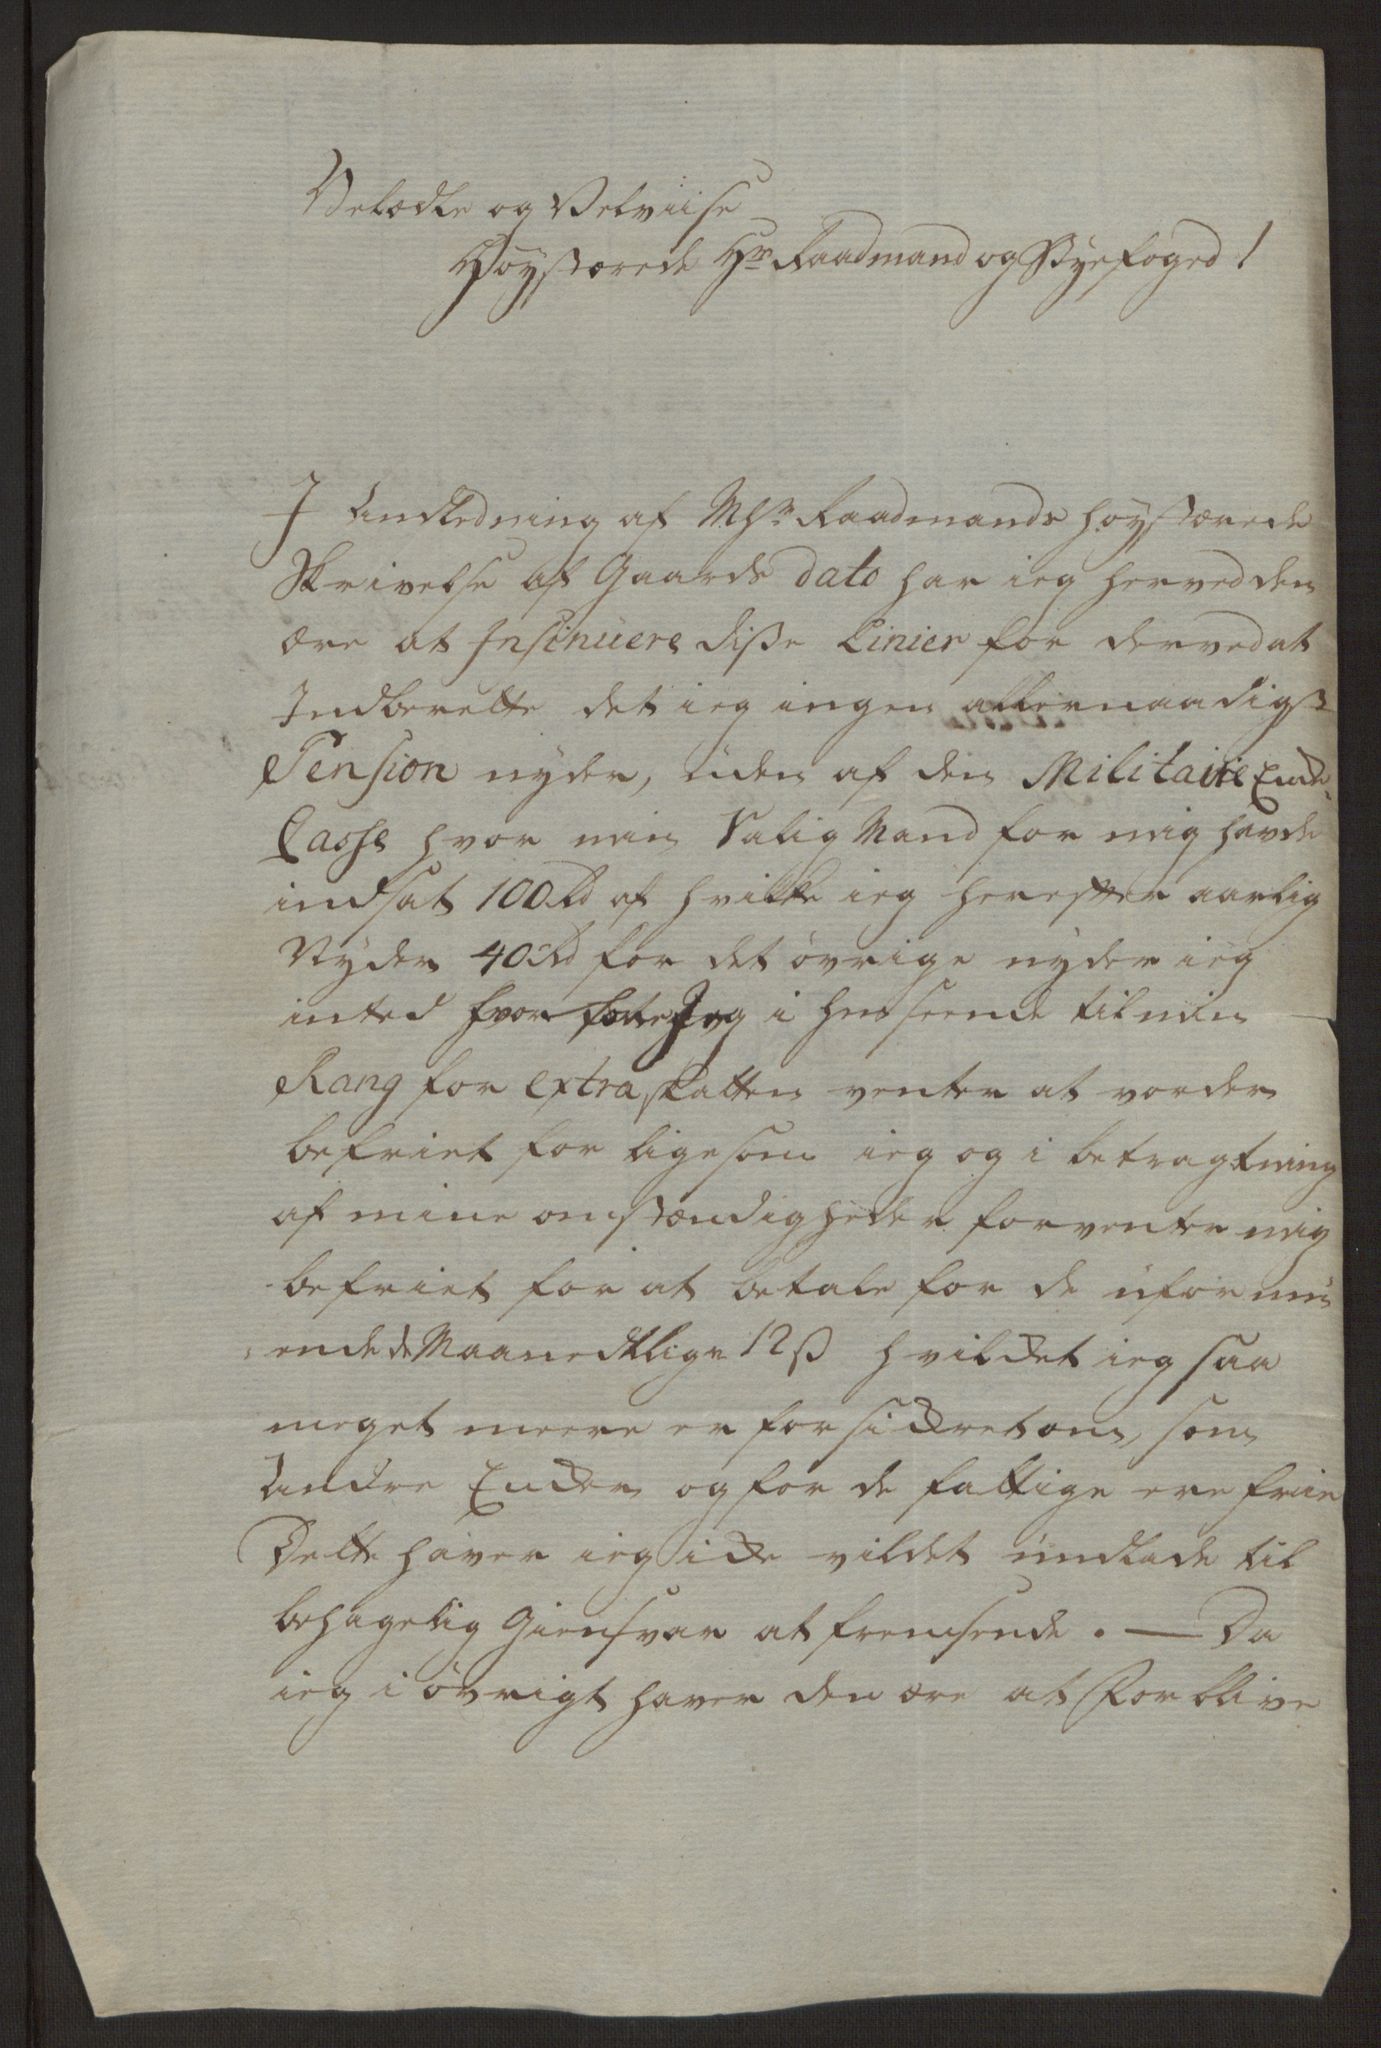 Velædle og Velviise
Høystærede Hr. Raadmand og Byefoged!
I Andledning af MHr. Raadmands høystærede
Skrivelse af Gaards dato har ieg herved den
ære at Insinuere disse Linier for derved at
Indberette det ieg ingen allernaadigst
Pension nyder, uden af den Militaire Enke
Casse hvor min Salig Mand for mig havde
indsat 100 Rd af hvilke ieg herefter aarlig
Nyder 40 Rd for det øvrige nyder ieg
inted hvor fore Jeg i henseende til min
Rang for Extra skatten venter at vorder
befriet for ligesom ieg og i betragtning
af mine omstændigheder forventer mig
befriet for at betale for de uformu
ende de Maanedtlige 12 ß hvilket ieg saa
meget meere er forsikret om, som
Andre Enker og for de fattige ere frie
Dette haver ieg ikke vildet undlade til
behagelig Giensvar at fremsende. — Da
ieg i øvrigt haver den ære at Forblive